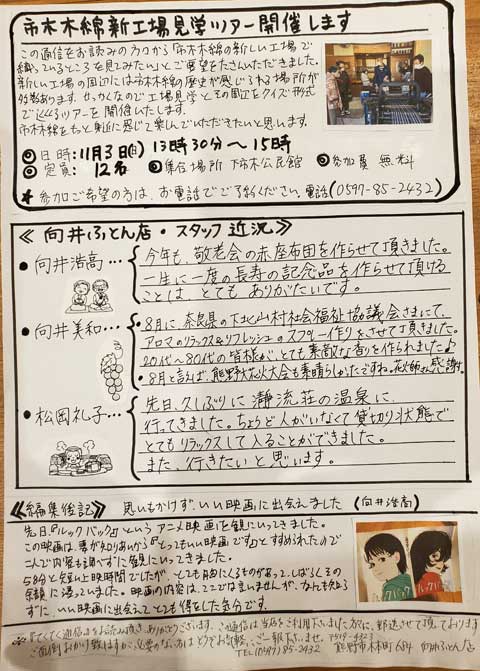 市木木綿新工場見学ツアー開催します
この通信をお読みの方々から「市木木綿の新しい工場で
織っているところを見てみたい」とご要望をたくさんいただきました。
新しい工場の周辺には市木木綿の歴史が感じられる場所が
多数あります。せっかくなので工場見学とその周辺をクイズ形式
でツアーを開催いたします。
市木木綿をもっと身近に感じて楽しんでいただきたいと思います。
日時:11月3日(日) 13時30分〜15時
定員:12名 集合場所 下市木公民館 参加費 無料
* 参加ご希望の方は、お電話でご予約ください。電話(0597-85-2432)
≪向井ふとん店・スタッフ近況≫
● 向井浩高…
今年も、敬老会の赤座布団を作らせて頂きました。
一生に一度の長寿の記念品を作らせて頂ける
ことは、とても ありがたいです。
● 向井美和…
・8月に、奈良県の下北山村社会福祉協議会さまにて、
アロマのリラックス&リフレッシュのスプレー作りをさせて頂きました。
20代〜80代の皆様が、とても素敵な香りを作られました♪
・8月と言えば、熊野大花火大会も素晴らしかったですね。花火師さん感謝。
● 松岡礼子…
先日、久しぶりに 瀞流荘の温泉に
行ってきました。ちょうど人がいなくて貸切り状態で
とてもリラックスして入ることができました。
また、行きたいと思います。
≪編集後記≫ 思いもかけず、いい映画に出会えました (向井浩高)
先日、『ルックバック』というアニメ映画を観にいってきました。
この映画は、妻が知りあいから『とってもいい映画です』とすすめられたので
二人で内容も調べずに観にいってきました。
58分と短い上映時間でしたが、とても胸にくるものがあって、しばらくその
余韻に浸っていました。映画の内容は、ここでは言いませんが、なんも知ら
ずに、いい映画に出会えて とても得をした気分です。
ルックバック
※『てくてく通信』をお読み頂き、ありがとうございます。この通信は当店をご利用下さいました方に、郵送させて頂いております
ご面倒おかけ致しますが、必要のない方はどうぞお気軽に、ご一報下さいませ。〒519-4323
TEL(0597)85-2432 熊野市木本町 向井ふとん店